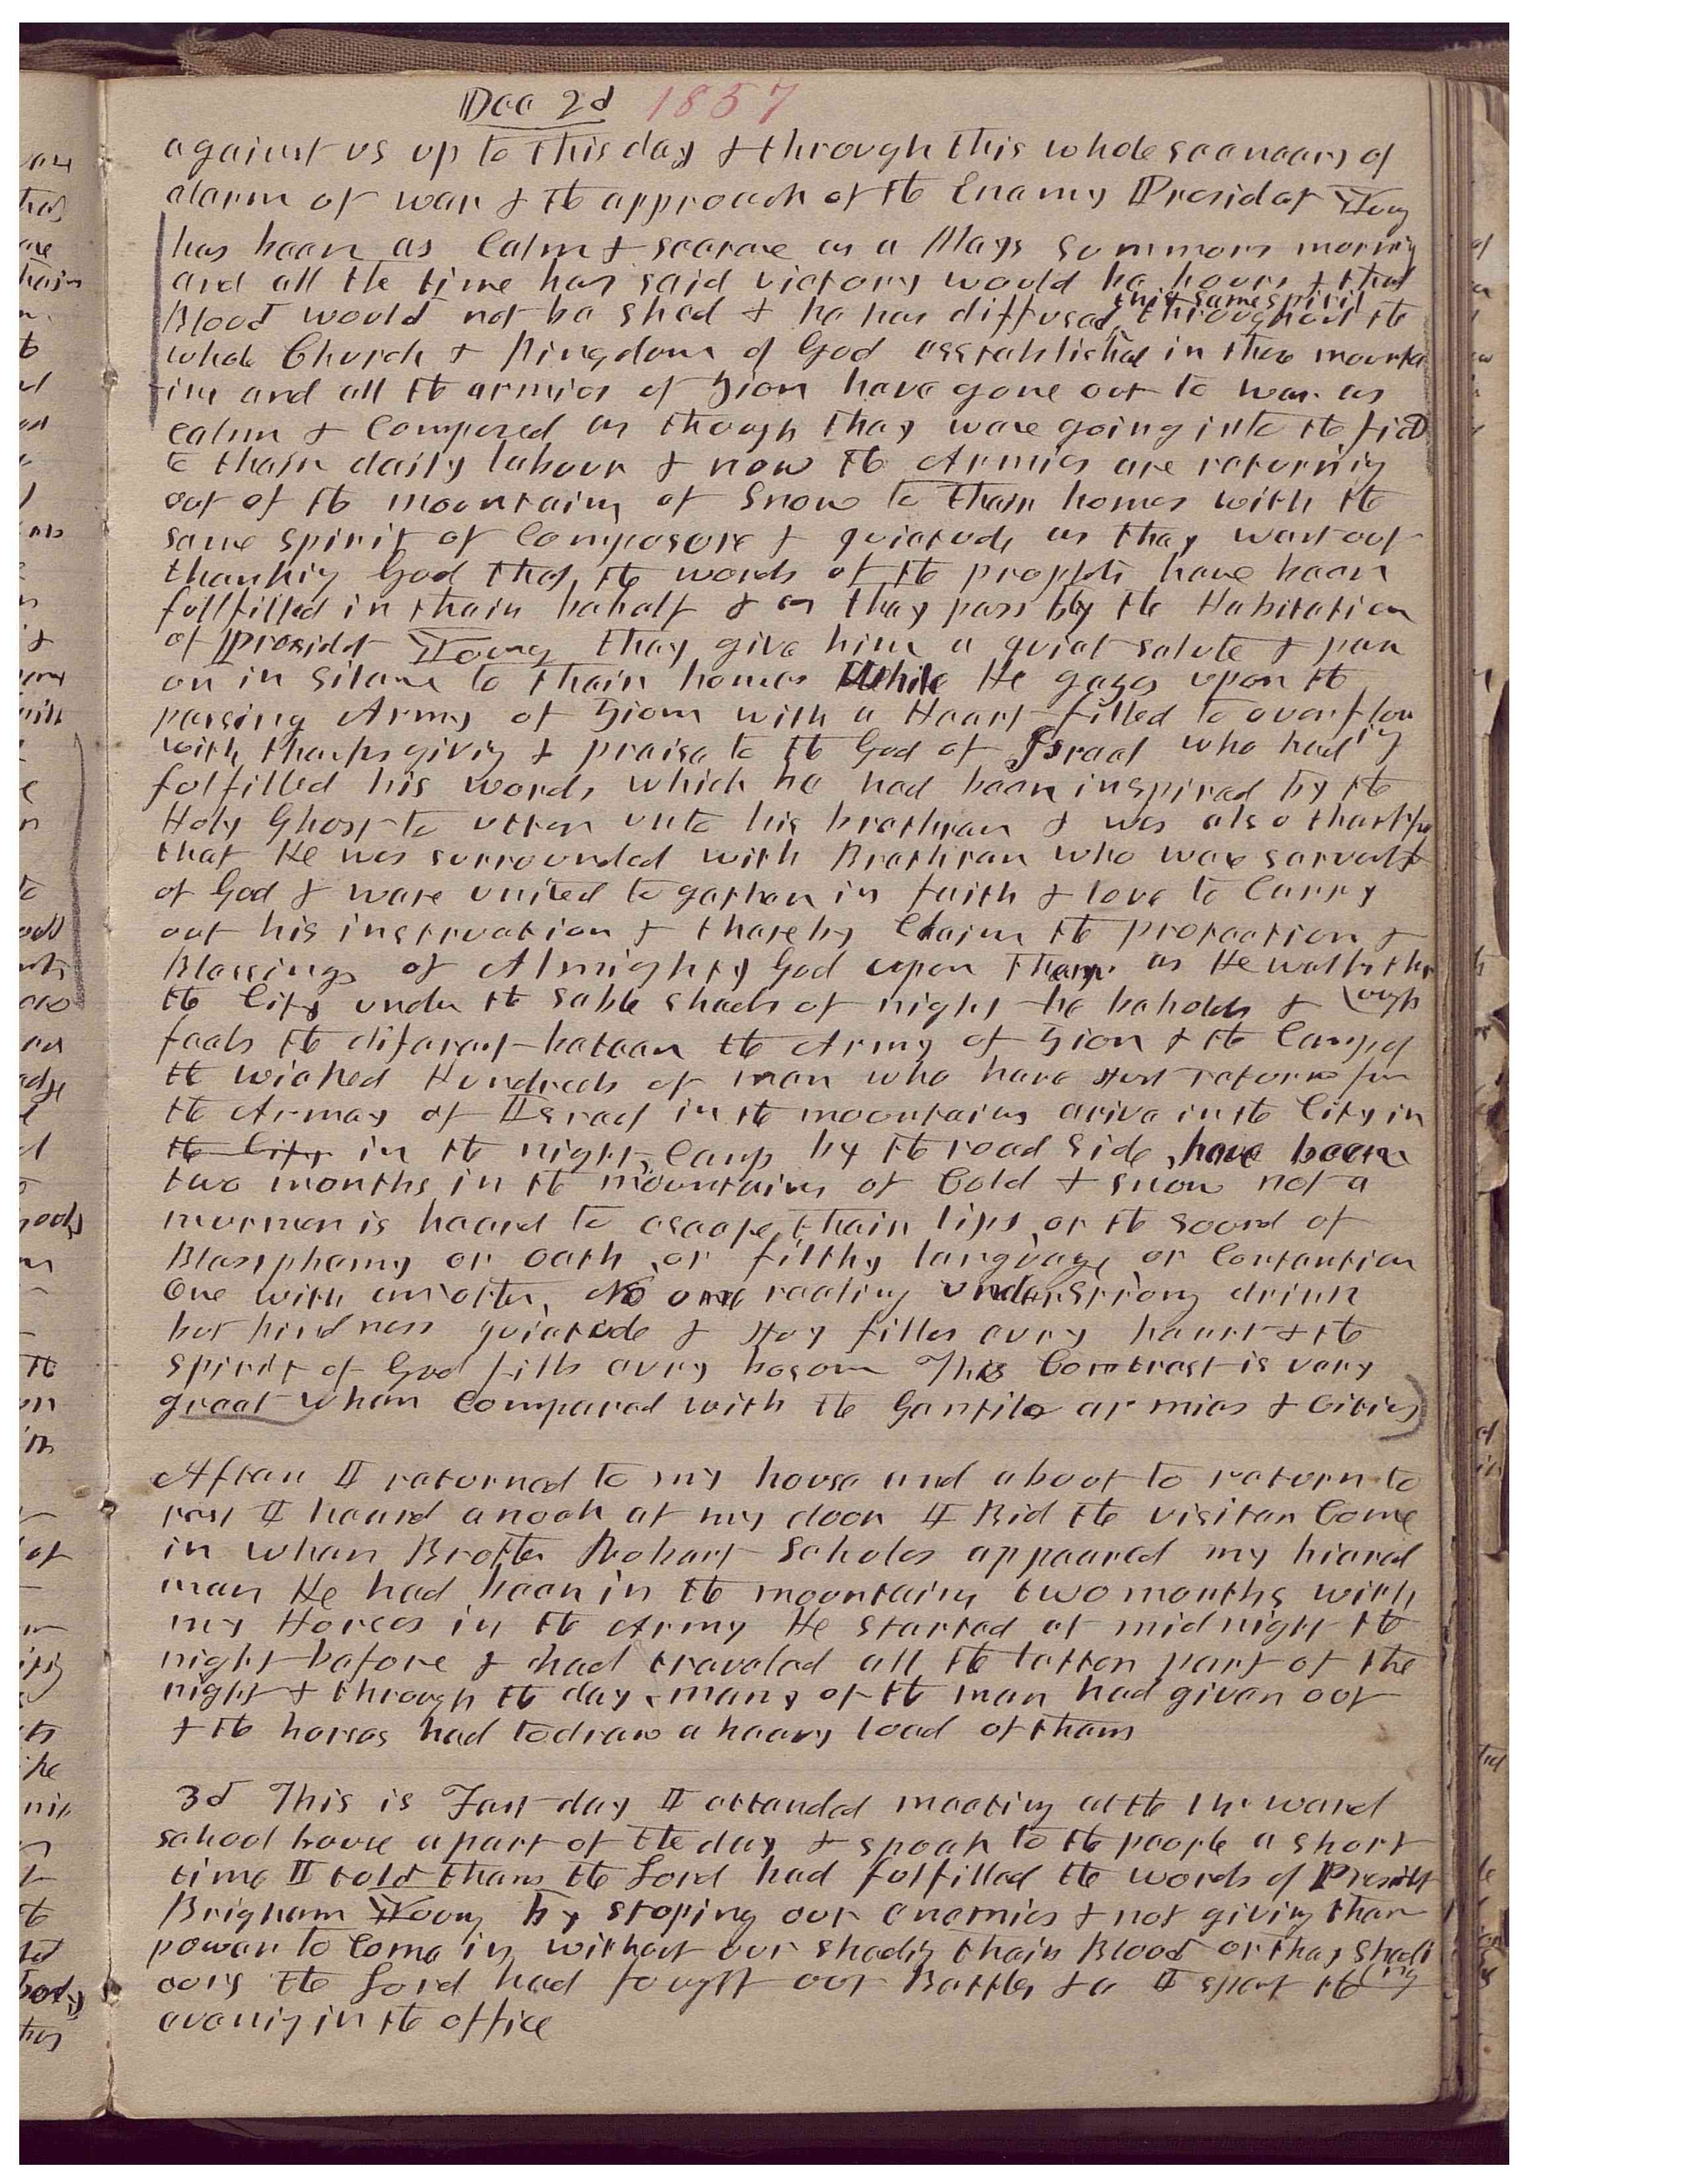 Dec 2d 1857
against us up to this day & through this whole sceenery of
alarm of war & the approach of the Enemy President Young
has been as Calm & searene as a Mays Summers morning
and all the time has said victory would be hours & that
this same spirit
Blood would not be shed & he has diffused throughout the
whole Church & Kingdom of God esstablished in these mounta
ins and all the armies of Zion have gone out to war as
calm & Composed as though they were going into the field
to their daily labour & now the Armies are returnig
out of the mountains of Snow to their homes with the
same spirit of Composure & quietude as they went out
thankig God that the words of the prophets have been
fullfilled in their behalf & as they pass by the Habitation
of Presidet Young they give him a quiet salute & pass
on in Silance to their homes While He gazes upon the
passing Army of Zion with a Heart filled to overflow
ing
with thanksgivig & praise to the God of Israel who had
fulfilled his words which he had been inspired by the
Holy Ghost to utter unto his brethren & was also thankful
that He was surrounded with Brethren who ware servents
of God & ware united together in faith & love to Carry
out his instruction & thareby Claim the protection &
Blessings of Almighty God upon them. as He walks thr
ough
the City under the sable shads of night he beholds &
feels the diferent beteen the Army of Zion & the Camp of
the wicked Hundreds of men who have just returned from
the Armey of Israel in the mountains arive in the City in
the City in the night, Camp by the road side, have been
two months in the mountains of Cold & snow not a
murmer is heard to escape their lips, or the sound of
Blasphemy or oath, or filthy language, or Contention
One with another, No one reeling under strong drink
but kindness quietude & Joy filles evry heart & the
spirit of God fills evry bosom This Contrast is very
great when Compared with the Gentile armies & Cities
After I returned to my house and about to return to
rest I heard a nock at my door I Bid the visiter Come
in when Brother Robert Scholes appeared my hiered
man He had been in the mountains two months with
my Horces in the Army He started at midnight the
night before & had traveled all the latter part of the
night & through the day, many of the men had given out
& the horses had to draw a heavy load of them
3d This is Fast day I attended meeting at the 14 ward
school house a part of the day & spoak to the people a short
time I told them the Lord had fulfilled the words of Presidet
Brigham Young by stoping our enemies & not givig them
power to Come in without our shedig their Blood or they shed
ing
ours the Lord had fought our Battles &c I spent the
evenig in the office